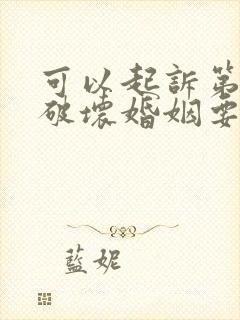 可以起訴第
破壞婚姻要
藍妮